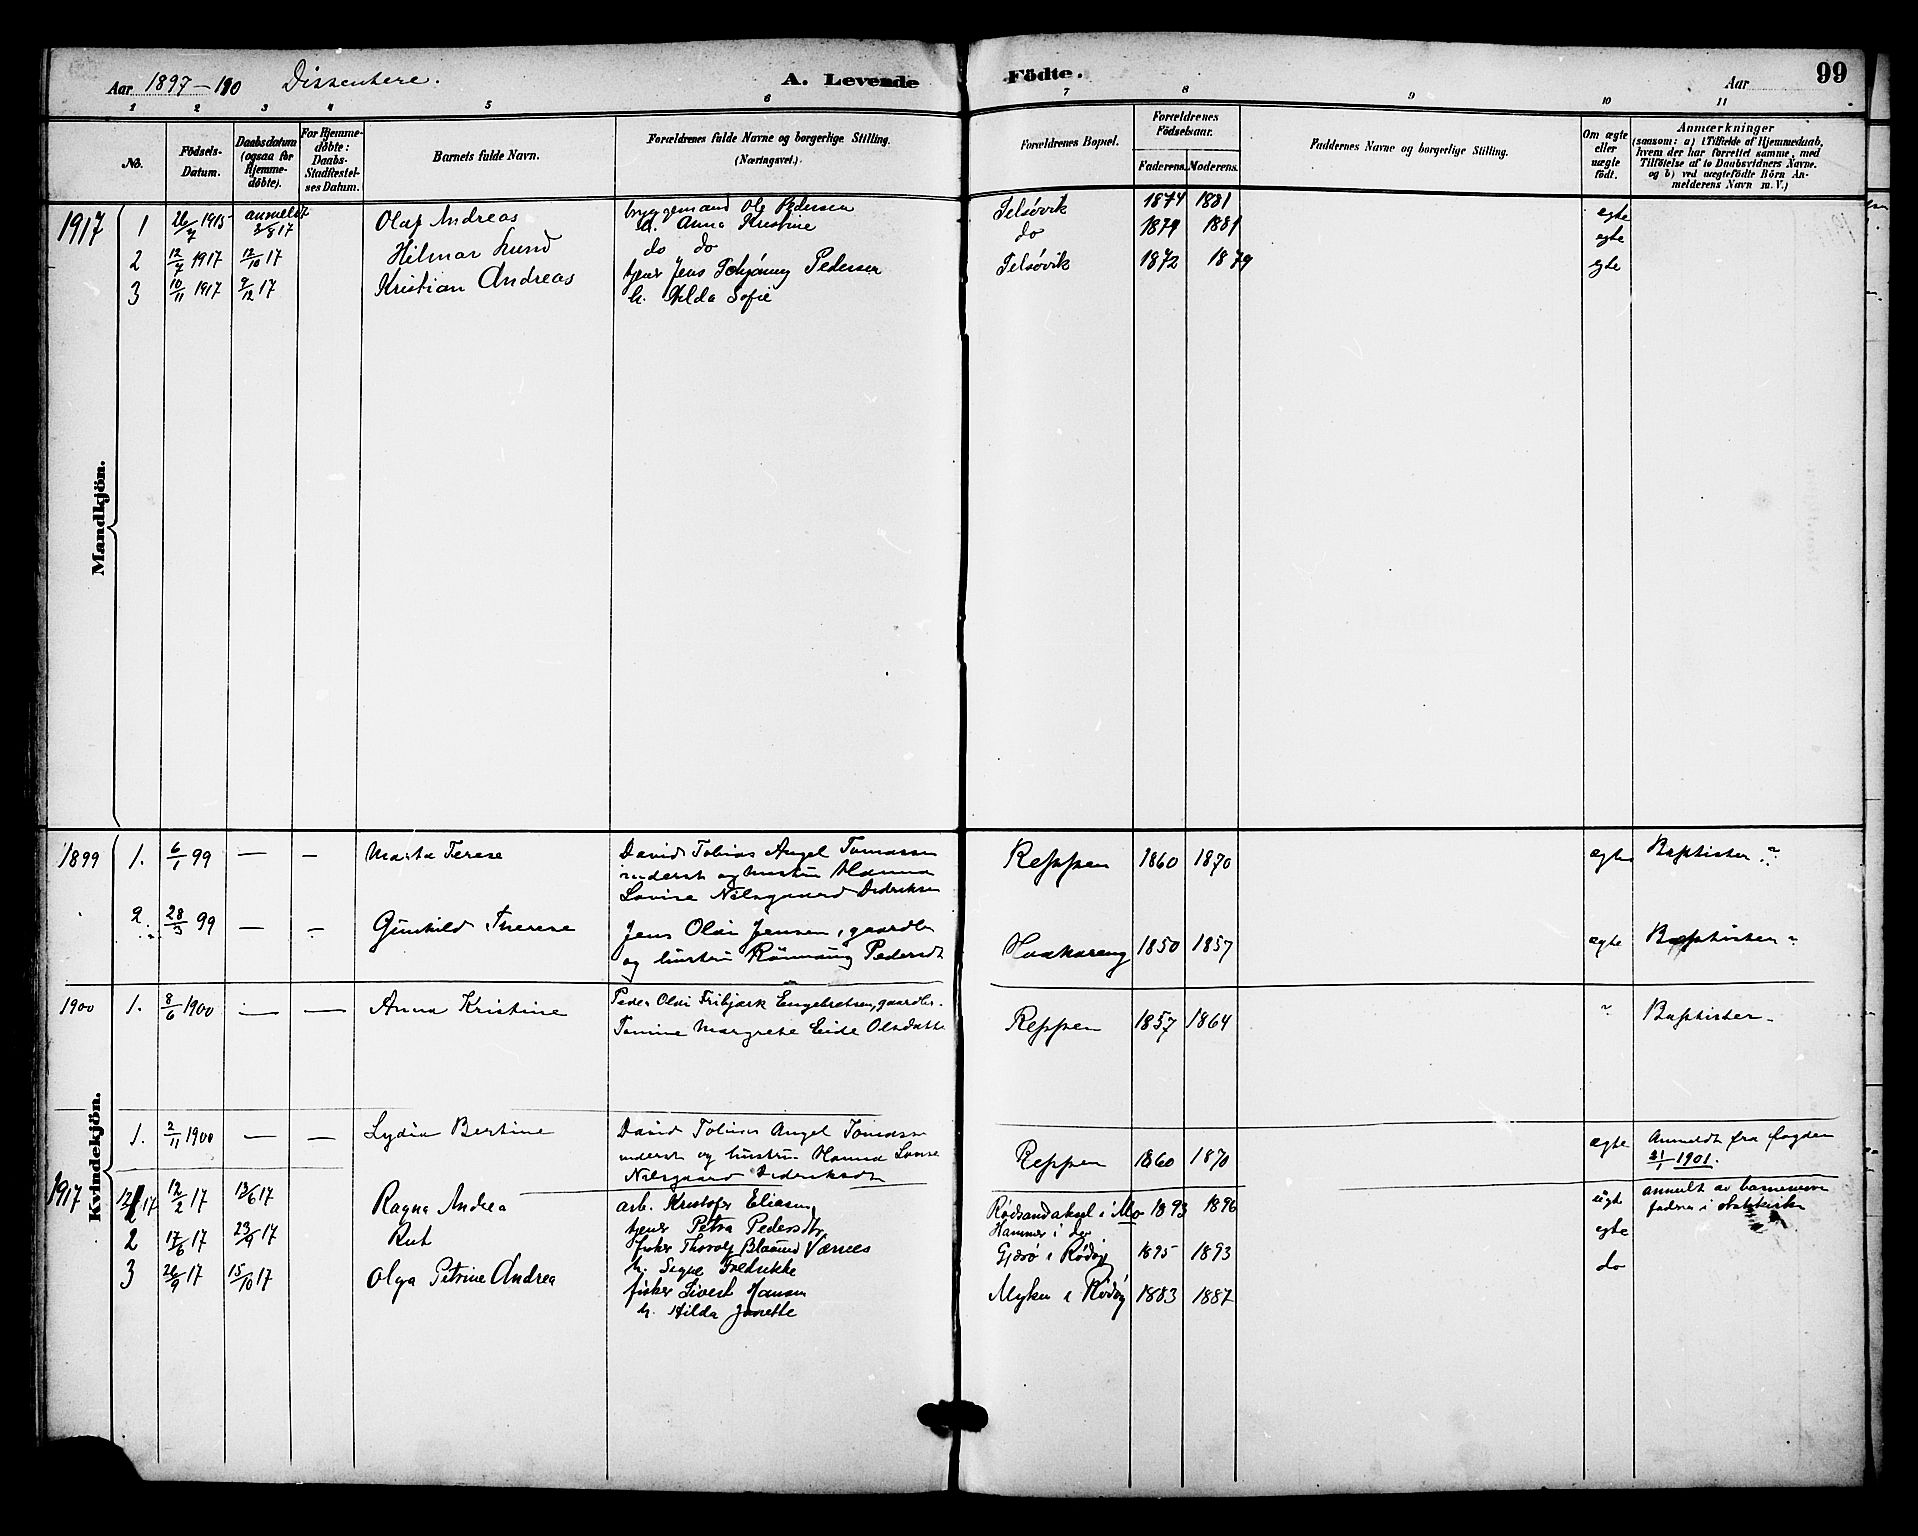 Aar 1897-1900 Dissentere. A. Levende Födte. Aar 99
1 2 3 4 5 6 7 8 9 10 11
No. Födsels-Datum. Daabsdatum (ogsaa for Hjemmedøbte). For Hjemmedøbte: Daabs-Stadfæstelses Datum. Barnets fulde Navn. Forældrenes fulde Navne og borgerlige Stilling. (Næringsvei.) Forældrenes Bopæl. Forældrenes Födselsaar. Faderens. Moderens. Faddernes Navne og borgerlige Stilling. Om ægte eller uægte født.
Anmærkninger
(saasom: a) i Tilfælde af Hjemmedaab,
hvem der har forrettet samme, med
Tilföielse af to Daabsvidners Navne.
og b) ved uægtefödte Börn An-
melderens Navn m. V.)
Mandkjön.
1917 1 26/7 1915 anmeldt 3/8 17 Olaf Andreas Ole Pedersen Selsøvik 1874 1881 egte
h. Anna Kristine
2 12/7 1917 12/10 17 Hilmar Lund do do do 1879 1881 egte
3 10/11 1917 9/12 17 Kristian Andreas Jens Pedersen Selsøvik 1872 1879 egte
h. Hilda Sofie
Kvindekjön.
1899 1. 6/1 99 — — Marta Terese David Tobias Angel Tomassen Reppen 1860 1870 ægte Baptister
inderst og hustru Hanna
Lovise Nilsgaard Dideriksen
2 28/3 99 — — Gunhild Therese Jens Olai Jensen, gaardbr 1850 1857 ægte Baptister
og hustru Rönnaug Pedersdt
1900 1. 8/6 1900 — — Anna Kristine Peder Olai Fribjark Engebretsen, gaardbr. Reppen 1857 1864 " Baptister
Tomine Margrete Eide Olsdatter
1. 2/11 1900 — — Lydia Bertine David Tobias Angel Tomassen Reppen 1860 1870 ægte Anmeldt fra fogden
inderst og hustru Hanna Lovise 31/1 1901.
Nilsgaard Dideriksdt
1917 1 12/2 17 13/6 17 Ragna Andrea arb. Kristofer Eliasen i Mo 1893 1896 uegte anmelt av barnemoren
Petra Pedersdtr Hammer i
2 17/6 17 23/9 17 Rut fisker Thorolf Værnes Gjærø i Rødøy 1895 1893 egte
h. Signe Fredrikke
3 26/9 17 15/10 17 Olga Petrine Andrea fisker Sivert Hansen Myken i Rødøy 1883 1887 do
h. Hilda Janette